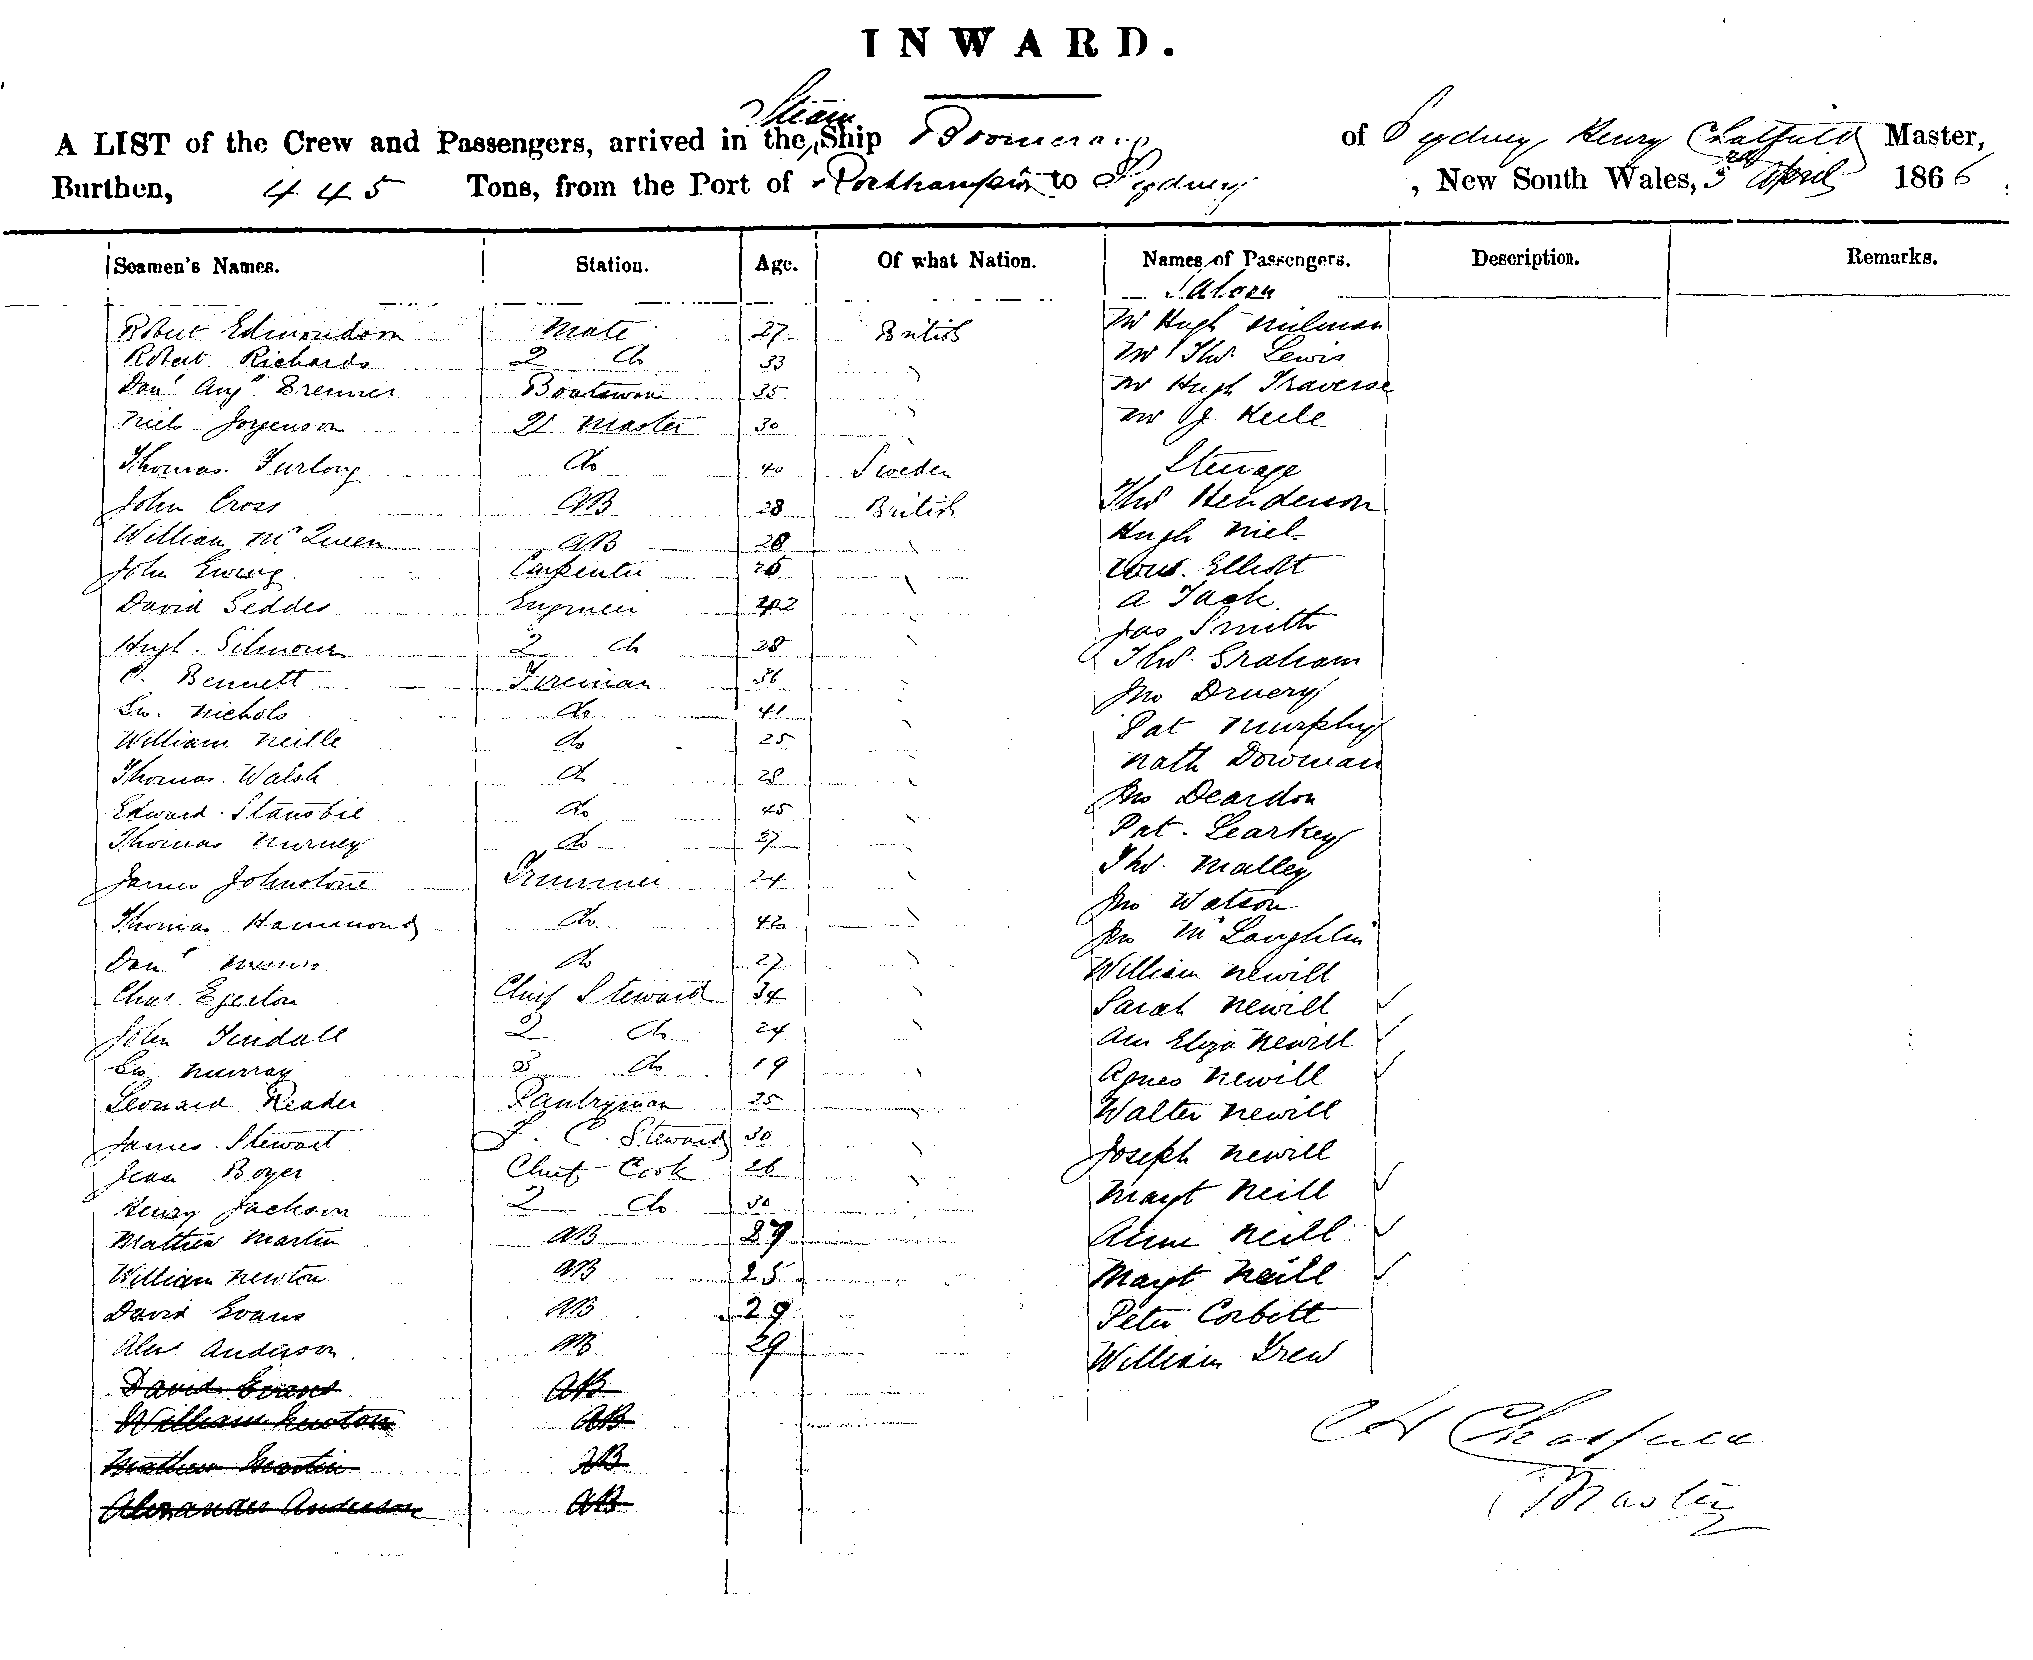 INWARD.
A LIST of the Crew and Passengers, arrived in the Steam Ship Boomerang of Sydney Henry Chatfield Master,
Burthen, 445 Tons, from the Port of Rockhampton to Sydney, New South Wales, 3rd April 1866
Seamen's Names. Station. Age. Of what Nation. Names of Passengers. Description. Remarks.
Saloon
Robert Edmondson Mate 27 British Mr Hugh Milman
Robert Richards 2 do 33 Mr Thos Lewis
Danl Augs Brenner Boatswain 35 Mr Hugh Traverse
Niels Jorgenson Qr Master 30 Mr J Keile
Thomas Furlong do 40 Sweden Steerage
John Cross AB 28 British Thos Henderson
William McQueen AB 28 Hugh Niel
John Ewing Carpenter 26 Wm. Elliott
David Geddes Engineer 42 A Jack
Jas Smith
Hugh Gilmour 2 do 28 Thos. Graham
C. Bennett Fireman 36 Jno Druery
Geo. Nichols do 41 Pat Murphy
William Neille do 25 Nath Dowman
Thomas Walsh do 28 Jno Deardon
Edward Stansbie do 45 Pat. Learkey
Thomas Nurney do 37 Thos. Malley
James Johnstone Trimmer 24 Jno Watson
Thomas Hammond do 42 Jno McLoughlin
Danl do 27 William Newill
Chas Egerton Chief Steward 34 Sarah Newill
John Tindall 2 do 24 Ann Eliza Newill
Geo Murray 3 do 19 Agnes Newill
Leonard Reader Pantryman 25 Walter Newill
James Stewart F. C. Steward 30 Joseph Newill
Jean Boyer Chief Cook 26 Magt Neill
Henry Jackson 2 do 30 Anne Neill
Matthew Martin AB 27
William Newton AB 25 Magt Neill
David Evans AB 29 Peter Corbett
Alex Anderson AB 29 William Drew
David Evans AB
William Newton AB
Mathew Martin AB
Alexander Anderson AB
H Chatfield
Master